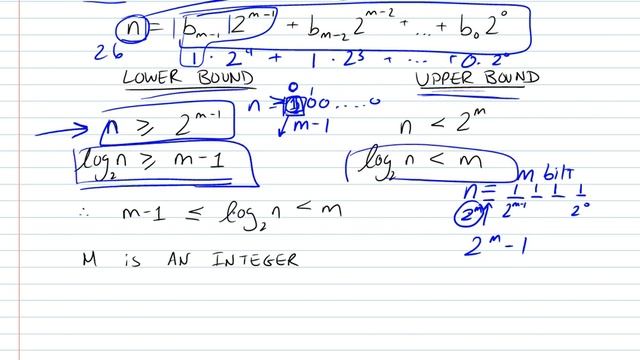 n = |b_{m-1}|2^{m-1} + b_{m-2} 2^{m-2} + ... + b_0 2^0
26 1 · 2^4 + 1 · 2^3 + ... + 0 · 2^0
LOWER BOUND UPPER BOUND
0 1
n = 100....0
n ≥ 2^{m-1} m-1 n < 2^m
log_2 n ≥ m-1 log_2 n < m
m bilt
n = 1 1 1 1
2^m 2^{m-1} 2^0
∴ m-1 ≤ log_2 n < m
2^m - 1
M IS AN INTEGER